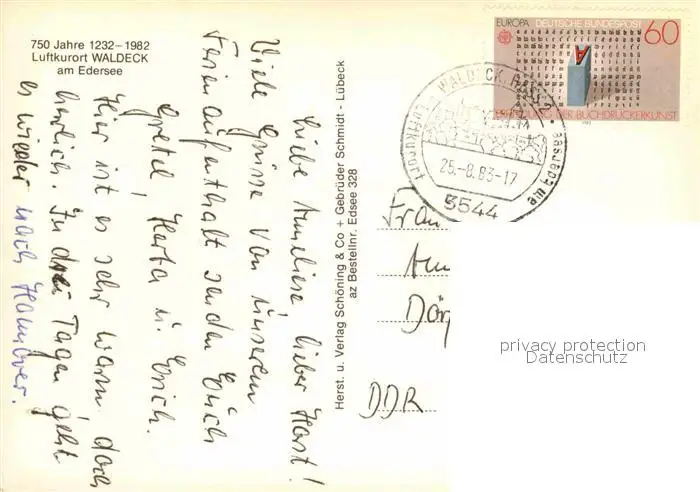 750 Jahre 1232–1982
Luftkurort WALDECK
am Edersee
Liebe Anneliese, lieber Horst!
Viele Grüsse von unserem
Ferienaufenthalt senden Euch
Gretel, Herta u. Erich.
Hier ist es sehr warm, doch
herrlich. In drei Tagen geht
es wieder nach Hannover.
Herst. u. Verlag Schöning & Co + Gebrüder Schmidt - Lübeck
az Bestellnr. Edsee 328
EUROPA DEUTSCHE BUNDESPOST 60
ERFINDUNG DER BUCHDRUCKERKUNST
1983
WALDECK, HESS 2
Luftkurort
am Edersee
25.-8.83-17
3544
Frau
DDR
privacy protection
Datenschutz